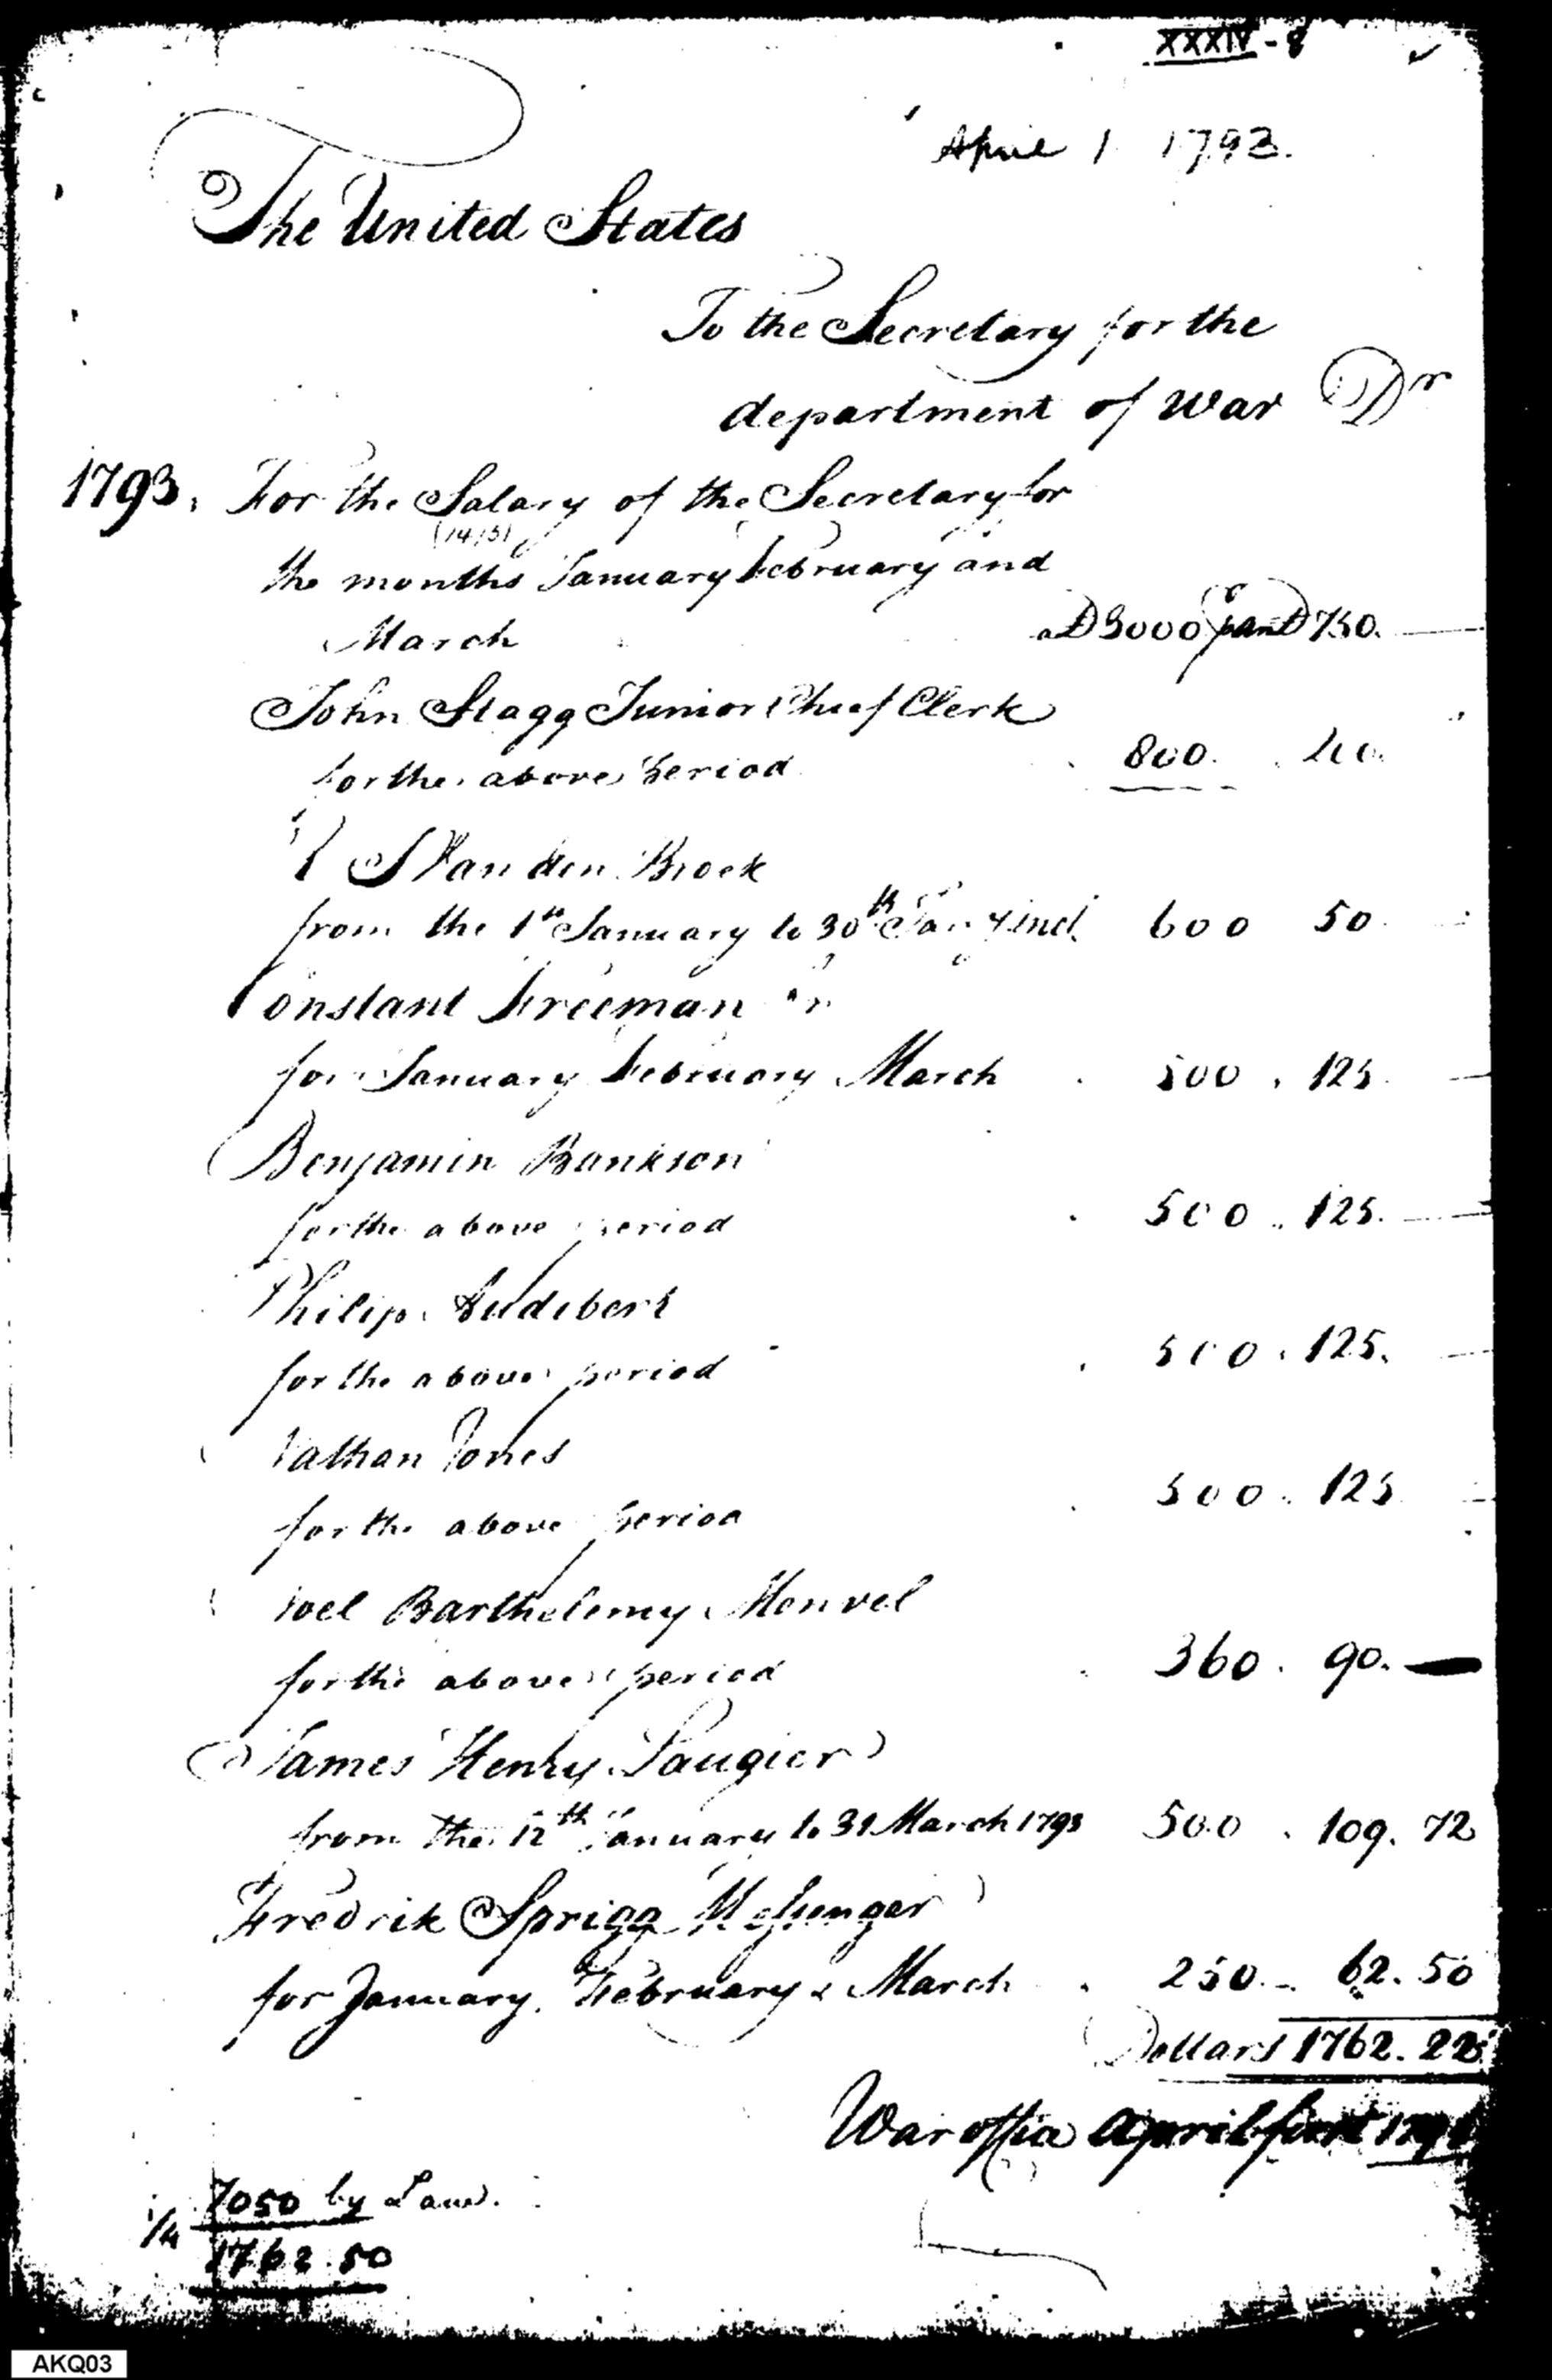 XXXIV - 8
April 1 1793.
The United States
To the Secretary for the
department of War Dr
1793. For the Salary of the Secretary for
the months January February and
March a D3000 p an D 750.
John Stagg Junior Chief Clerk
for the above period 800.
S Van den Broek
from the 1st January to 30th Jany incl. 600 50
Constant Freeman
for January February March 500 . 125
Benjamin Bankson
for the above period 500 . 125.
Philip Audebert
for the above period 500 . 125.
Nathan Jones
for the above period 500 . 125
Noel Barthelemy Monvel
for the above period 360 . 90.
James Henry Laugier
from the 12th January to 31 March 1793 500 . 109. 72
Fredrik Sprigg Messenger
for January, February & March 250 . 62. 50
Dollars 1762. 22
War office April first 1793
7050 by Law.
1/4
1762.50
AKQ03